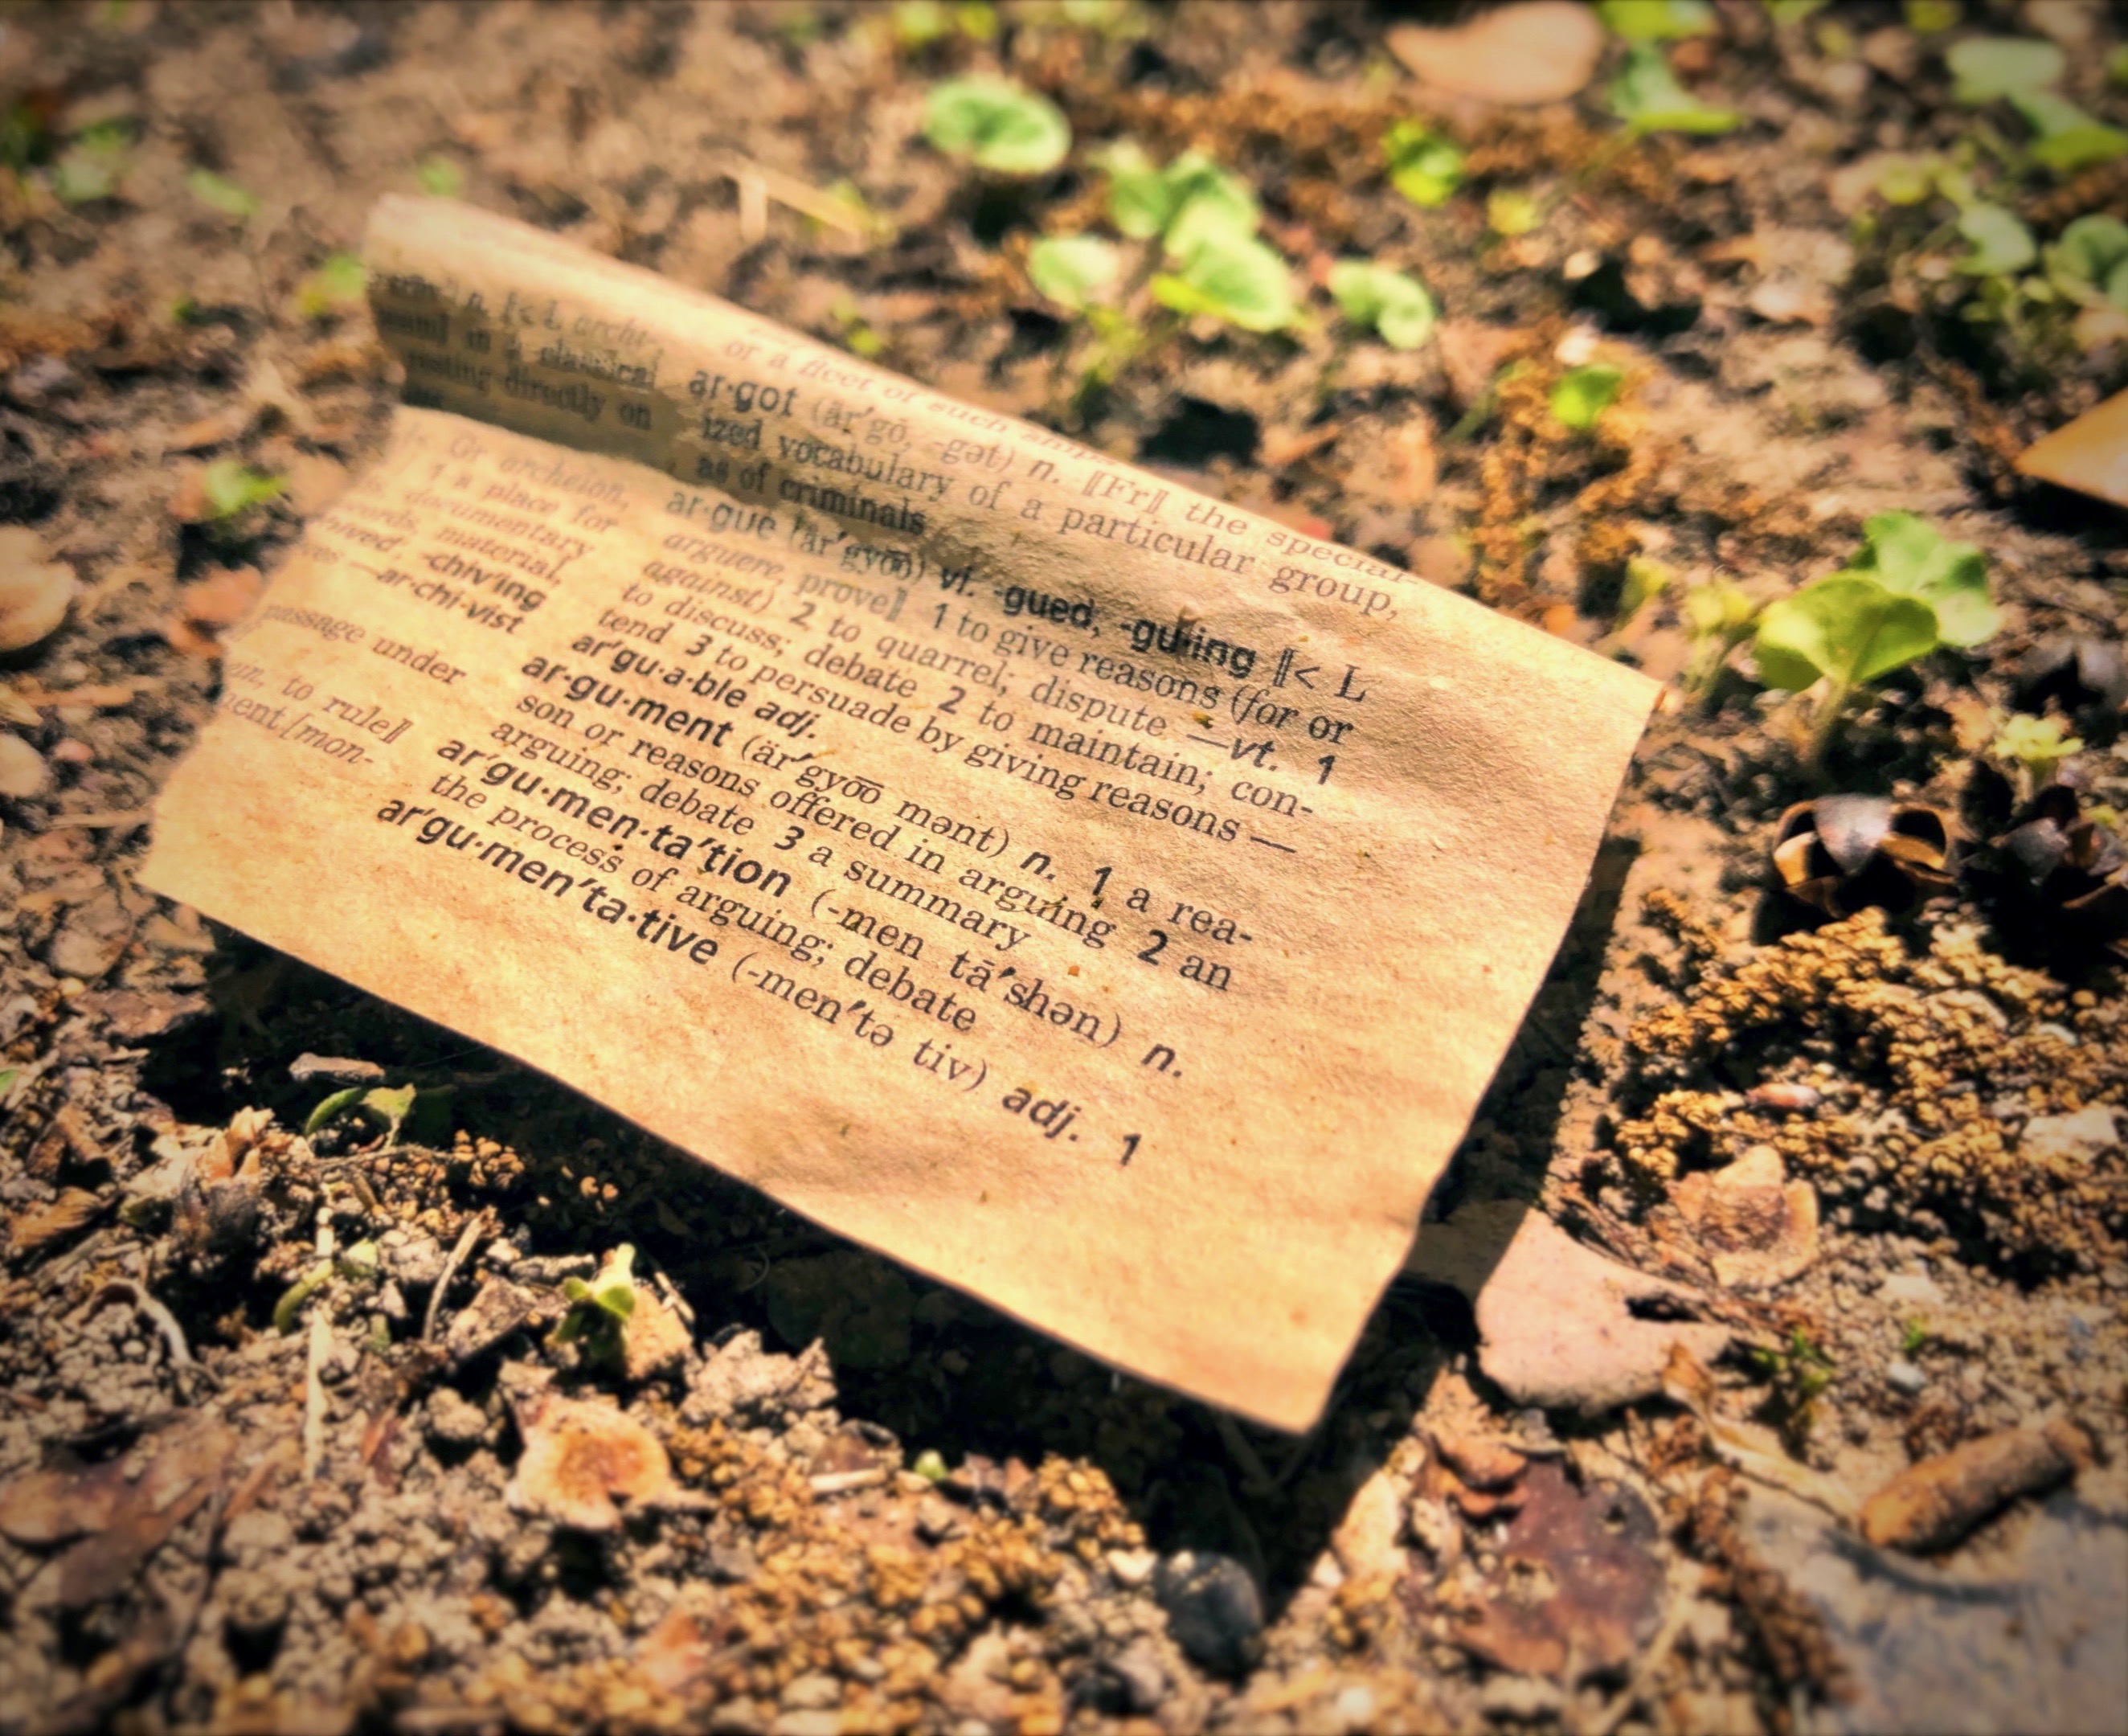 n. [< L archi-
in a classical
resting directly on
Gr archeion,
1 a place for
documentary
material,
-chiv·ing
—ar·chi·vist
passage under
to rule⟧
[mon-
or a fleet of such
ar·got (är′gō, -gət) n. ⟦Fr⟧ the special-
ized vocabulary of a particular group,
as of criminals
ar·gue (är′gyo͞o) vi. -gued, -gu·ing ⟦< L
arguere, prove⟧ 1 to give reasons (for or
against) 2 to quarrel; dispute —vt. 1
to discuss; debate 2 to maintain; con-
tend 3 to persuade by giving reasons —
ar′gu·a·ble adj.
ar·gu·ment (är′gyo͞o mənt) n. 1 a rea-
son or reasons offered in arguing 2 an
arguing; debate 3 a summary
ar′gu·men·ta′tion (-men tā′shən) n.
the process of arguing; debate
ar′gu·men′ta·tive (-men′tə tiv) adj. 1